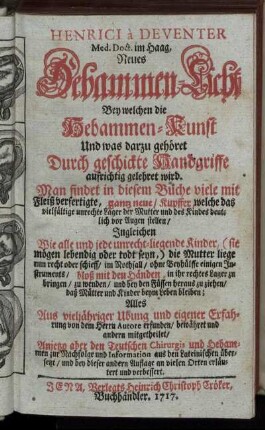 HENRICI à DEVENTER
Med. Doct. im Haag,
Neues
Hebammen-Licht
Bey welchen die
Hebammen-Kunst
Und was darzu gehöret
Durch geschickte Handgriffe
aufrichtig gelehret wird.
Man findet in diesem Buche viele mit
Fleiß verfertigte, gantz neue, Kupffer welche das
vielfältige unrechte Lager der Mutter und des Kindes deut-
lich vor Augen stellen,
Ingleichen
Wie alle und jede unrecht-liegende Kinder, (sie
mögen lebendig oder todt seyn,) die Mutter liege
nun recht oder schieff, im Nothfall, ohne Beyhülffe einigen In-
struments, bloß mit den Händen, in ihr rechtes Lager zu
bringen, zu wenden, und bey den Füssen heraus zu ziehen,
daß Mutter und Kinder beym Leben bleiben;
Alles
Aus vieljähriger Ubung und eigener Erfah-
rung von dem Herrn Autore erfunden, bewähret und
andern mitgetheilet,
Anjetzo aber den Teutschen Chirurgis und Hebam-
men zur Nachfolge und Information aus den Lateinischen über-
setzt, und bey dieser andern Auflage an vielen Orten erläu-
tert und verbessert.
JENA, Verlegts Heinrich Christoph Cröker,
Buchhändler. 1717.